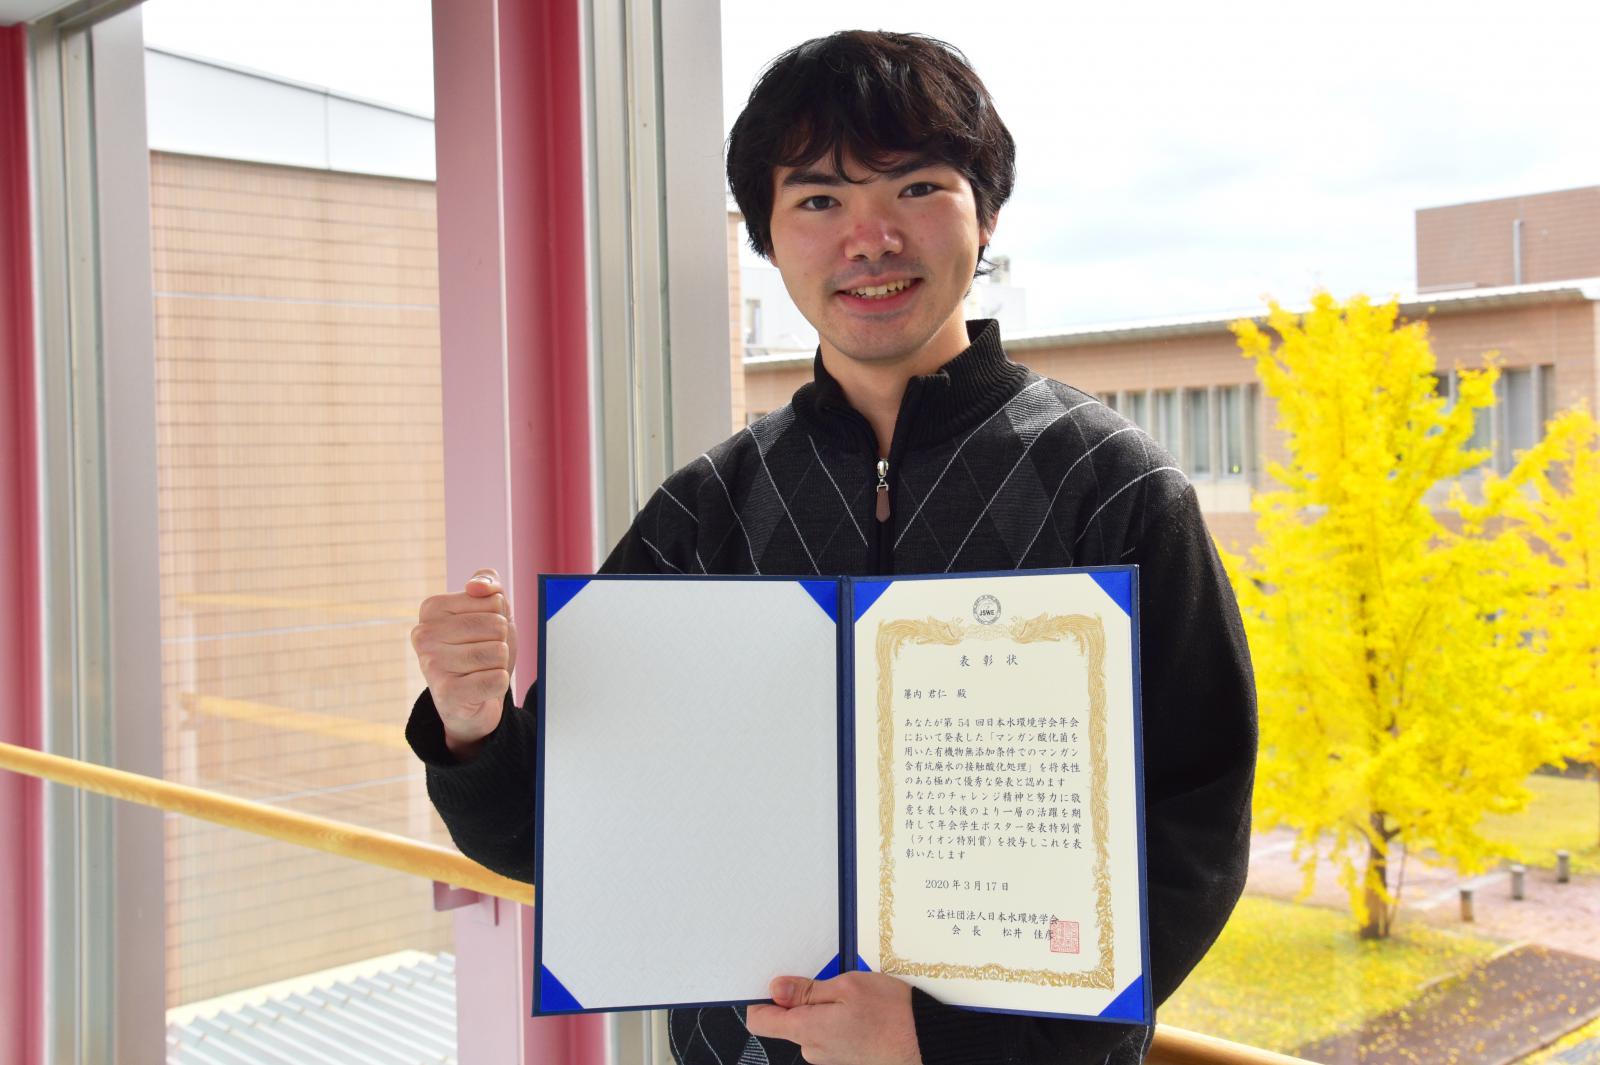 JSWE
表彰状
簾内 君仁 殿
あなたが第 54 回日本水環境学会年会
において発表した「マンガン酸化菌を
用いた有機物無添加条件でのマンガン
含有坑廃水の接触酸化処理」を将来性
のある極めて優秀な発表と認めます
あなたのチャレンジ精神と努力に敬
意を表し今後のより一層の活躍を期
待して年会学生ポスター発表特別賞
（ライオン特別賞）を授与しこれを表
彰いたします
2020 年 3 月 17 日
公益社団法人日本水環境学会
会 長 松井 佳彦